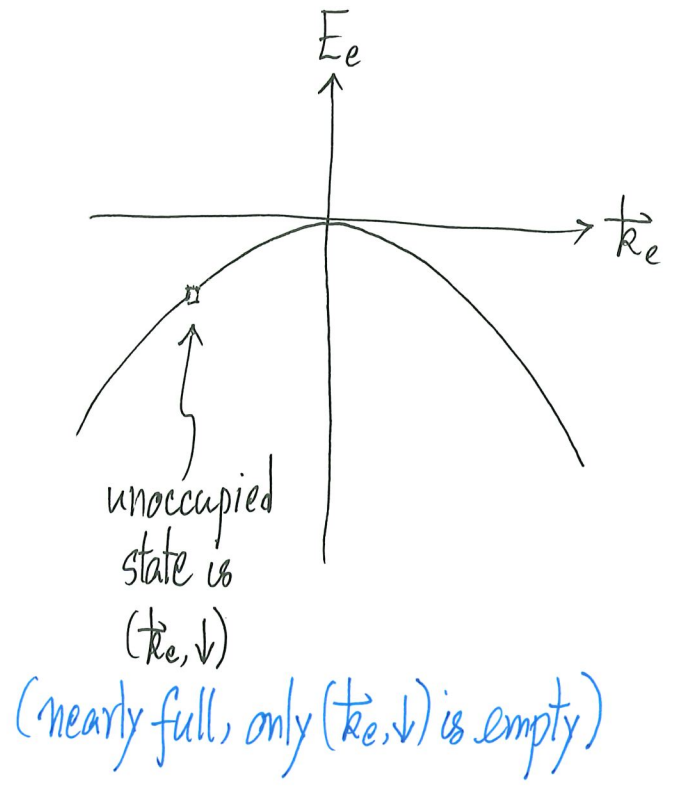 E_e
k⃗_e
unoccupied
state is
(k⃗_e,↓)
(nearly full, only (k⃗_e,↓) is empty)